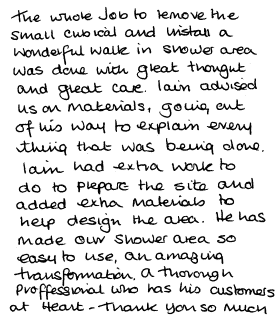 The whole Job to remove the
small cubical and install a
wonderful walk in shower area
was done with great thought
and great care. Iain advised
us on materials, going out
of his way to explain every
thing that was being done.
Iain had extra work to
do to prepare the site and
added extra materials to
help design the area. He has
made our shower area so
easy to use, an amazing
transformation. A thorough
proffessional who has his customers
at heart - Thank you so much